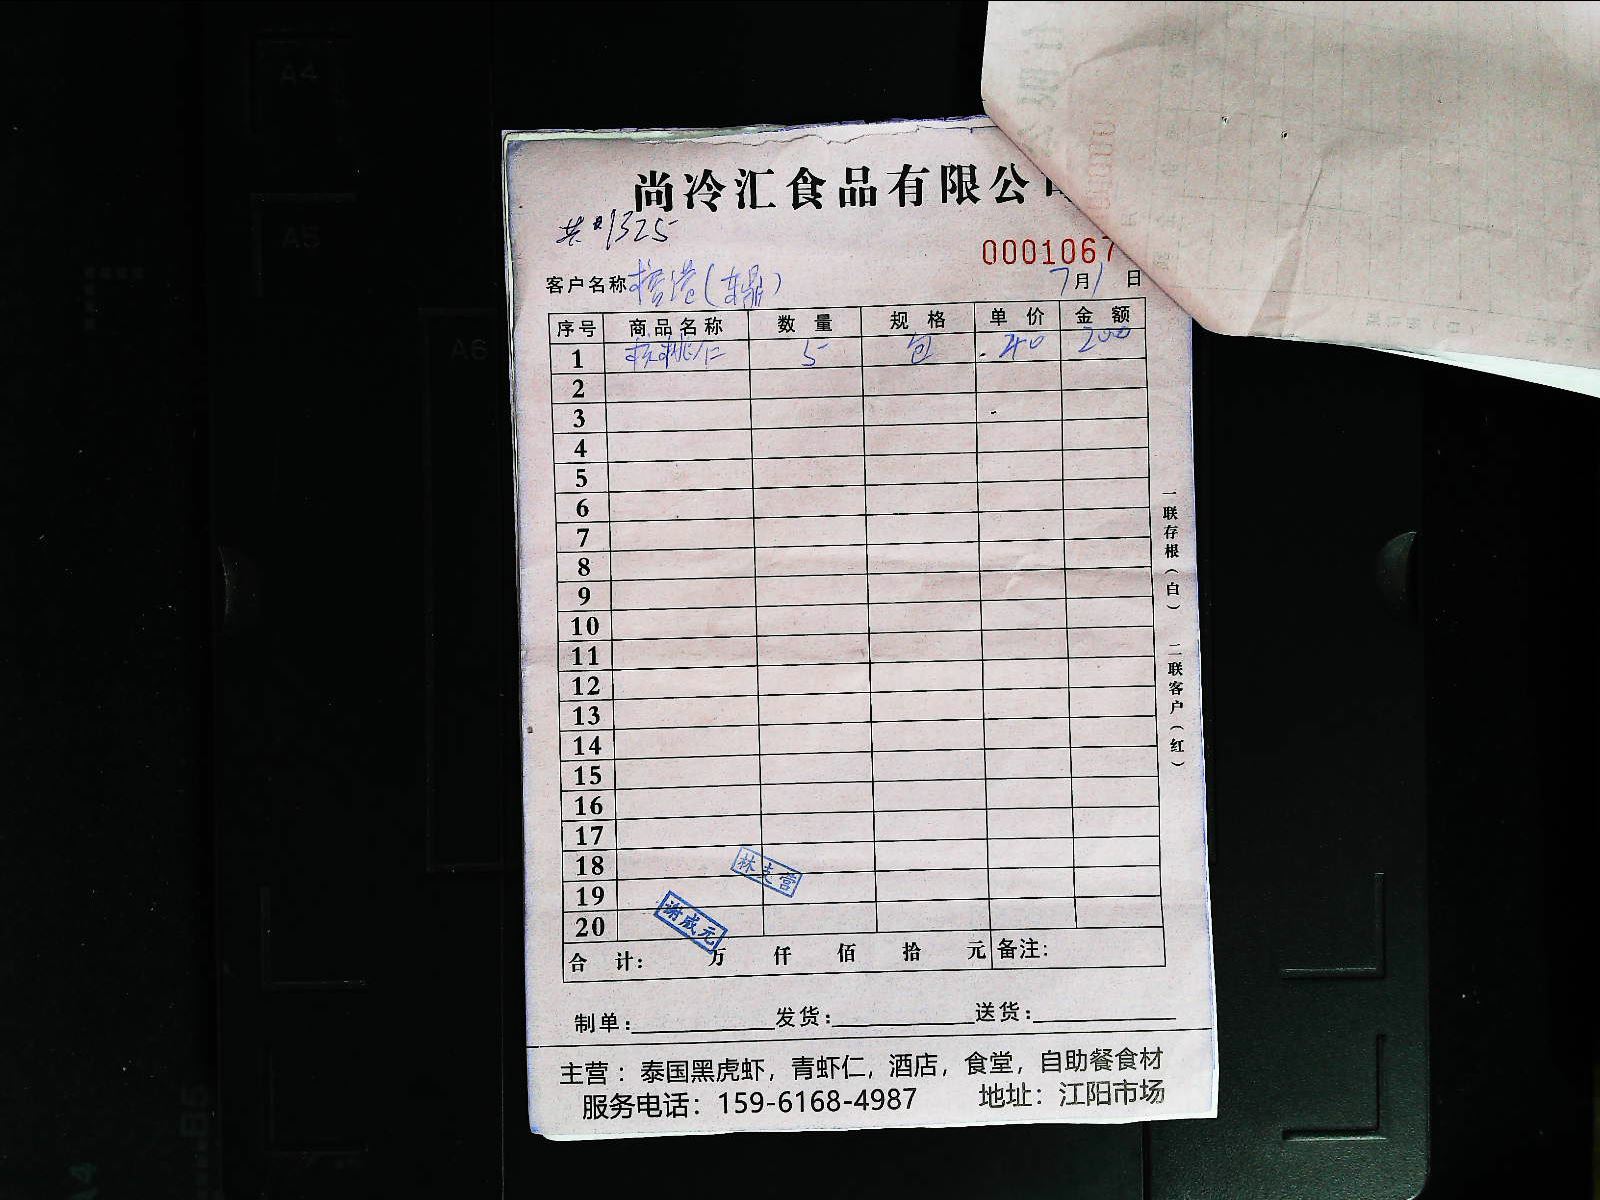 尚冷汇食品有限公
共#1325
0001067
客户名称 (东鼎) 7月1日
序号 商品名称 数量 规格 单价 金额
1 核桃仁 5 包 40 200
2
3
4
5
6
7
8
9
10
11
12
13
14
15
16
17
18
19
20
谢成元
合计: 万 仟 佰 拾 元 备注:
制单: 发货: 送货:
主营：泰国黑虎虾，青虾仁，酒店，食堂，自助餐食材
服务电话：159-6168-4987 地址：江阳市场
一联存根（白） 二联客户（红）
A4
A5
A6